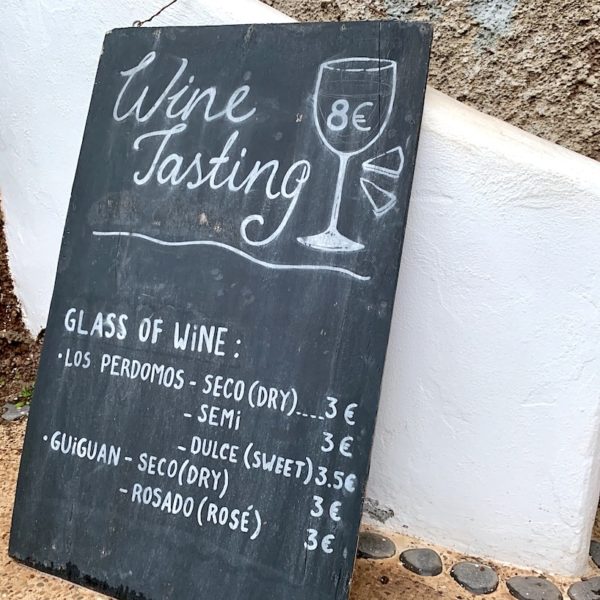 Wine
Tasting
8€
GLASS OF WiNE :
· LOS PERDOMOS - SECO (DRY)....3 €
- SEMi 3 €
- DULCE (SWEET) 3.5€
· GUiGUAN - SECO (DRY) 3 €
- ROSADO (ROSÉ) 3 €